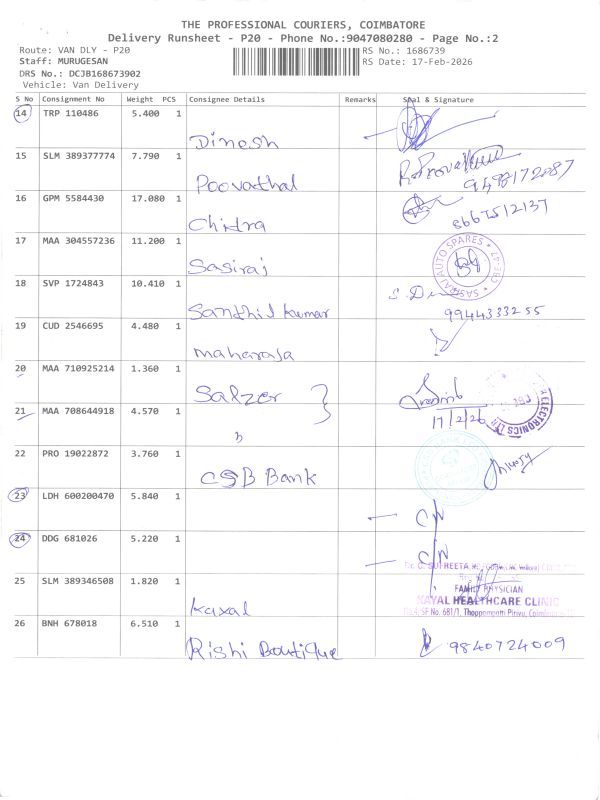 THE PROFESSIONAL COURIERS, COIMBATORE
Delivery Runsheet - P20 - Phone No.:9047080280 - Page No.:2
Route: VAN DLY - P20 RS No.: 1686739
Staff: MURUGESAN RS Date: 17-Feb-2026
DRS No.: DCJB168673902
Vehicle: Van Delivery
S No Consignment No Weight PCS Consignee Details Remarks Seal & Signature
14 TRP 110486 5.400 1
Dinesh
15 SLM 389377774 7.790 1
Poovathal 9498172087
16 GPM 5584430 17.080 1
Chitra 8667512137
17 MAA 304557236 11.200 1
Sasiraj SASIRAJ AUTO SPARES CBE-47
18 SVP 1724843 10.410 1
Santhil kumar 9944333255
19 CUD 2546695 4.480 1
maharaja
20 MAA 710925214 1.360 1
Salzer
21 MAA 708644918 4.570 1
17/2/26 ELECTRONICS LTD
22 PRO 19022872 3.760 1
CSB Bank
23 LDH 600200470 5.840 1
C/N
24 DDG 681026 5.220 1
C/N
25 SLM 389346508 1.820 1
FAMILY PHYSICIAN
KAYAL HEALTHCARE CLINIC
Kayal
26 BNH 678018 6.510 1
Rishi Boutique 9840724009